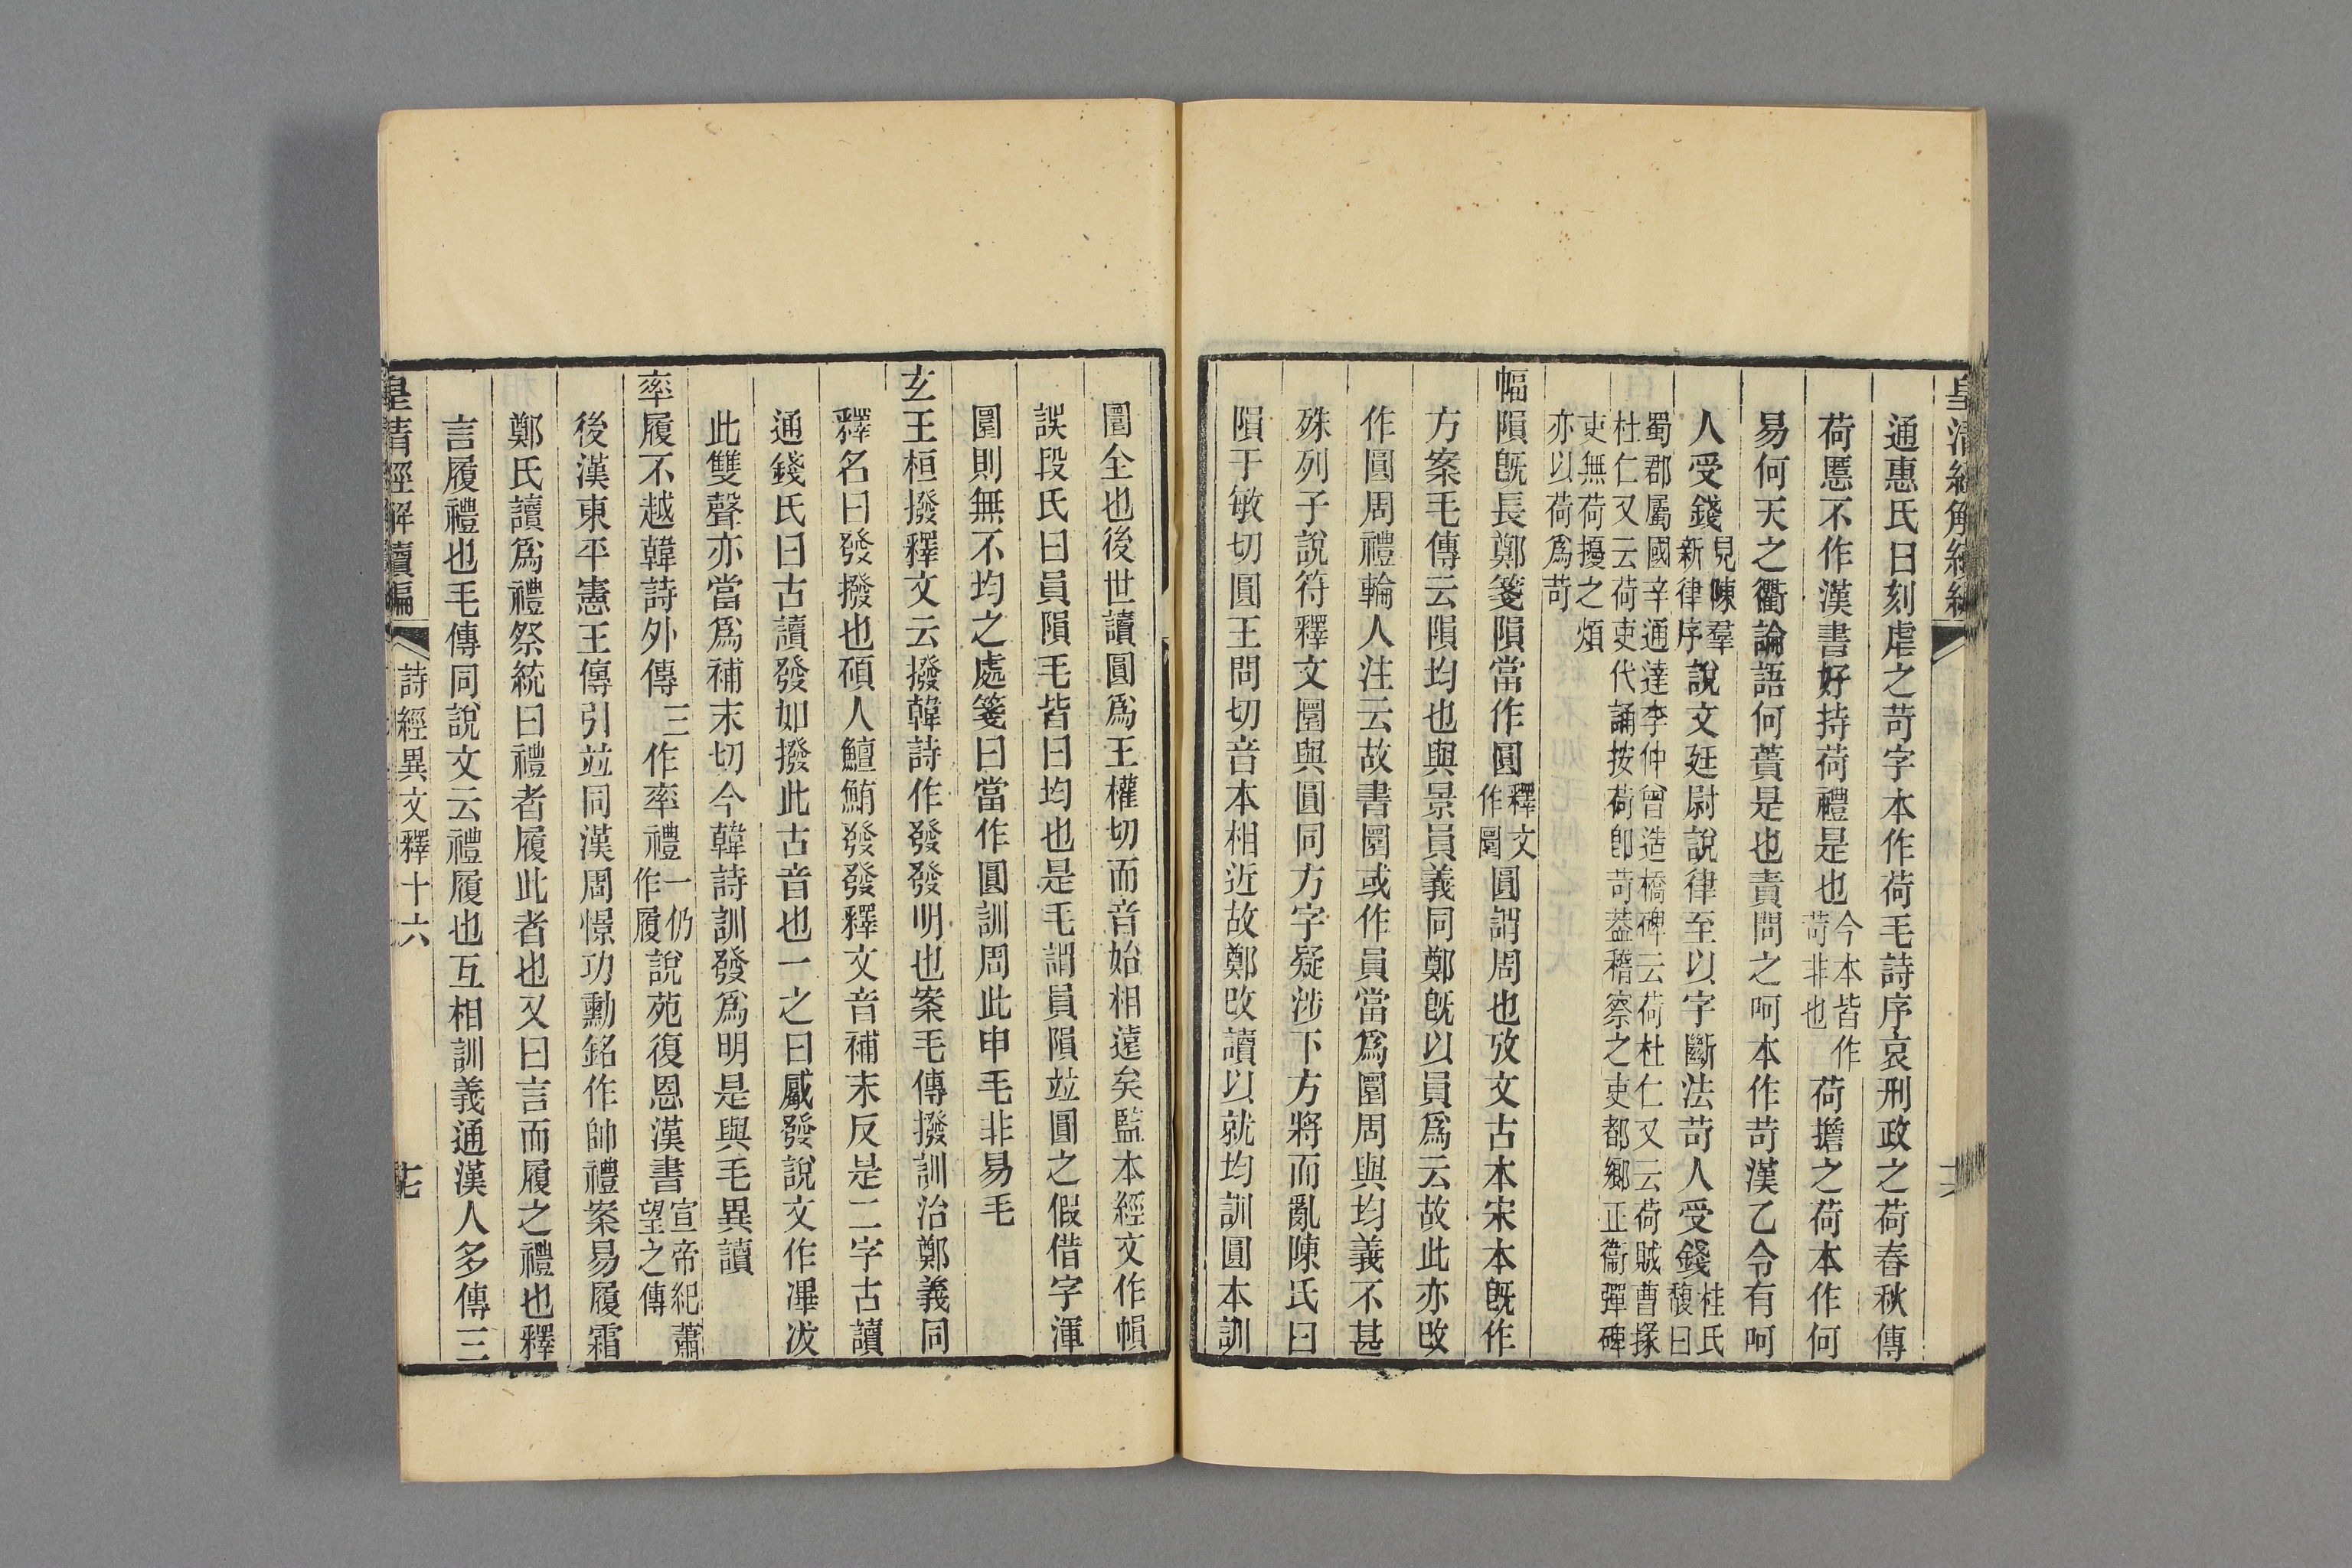 皇清經解續編
通惠氏曰刻虐之苛字本作荷毛詩序哀刑政之荷春秋傳
荷慝不作漢書好持荷禮是也今本皆作苛非也荷擔之荷本作何
易何天之衢論語何蕢是也責問之呵本作苛漢乙令有呵
人受錢見陳羣新律序說文廷尉說律至以字斷法苛人受錢桂氏馥曰
蜀郡屬國辛通達李仲曾造橋碑云荷杜仁又云荷賊曹掾
杜仁又云荷吏代誦按荷卽苛葢稽察之吏都鄉正衞彈碑
吏無荷擾之煩
亦以荷爲苛
幅隕旣長鄭箋隕當作圓釋文作圛圓謂周也攷文古本宋本旣作
方案毛傳云隕均也與景員義同鄭旣以員爲云故此亦改
作圓周禮輪人注云故書圜或作員當爲圜周與均義不甚
殊列子說符釋文圜與圓同方字疑涉下方將而亂陳氏曰
隕于敏切圓王問切音本相近故鄭改讀以就均訓圓本訓
圜全也後世讀圓爲王權切而音始相遠矣監本經文作㡓
誤段氏曰員隕毛皆曰均也是毛謂員隕竝圓之假借字渾
圜則無不均之處箋曰當作圓訓周此申毛非易毛
玄王桓撥釋文云撥韓詩作發發明也案毛傳撥訓治鄭義同
釋名曰發撥也碩人鱣鮪發發釋文音補末反是二字古讀
通錢氏曰古讀發如撥此古音也一之曰觱發說文作滭冹
此雙聲亦當爲補末切今韓詩訓發爲明是與毛異讀
率履不越韓詩外傳三作率禮一仍作履說苑復恩漢書宣帝紀蕭望之傳
後漢東平憲王傳引竝同漢周憬功勳銘作帥禮案易履霜
鄭氏讀爲禮祭統曰禮者履此者也又曰言而履之禮也釋
言履禮也毛傳同說文云禮履也互相訓義通漢人多傳三
皇清經解續編
詩經異文釋十六